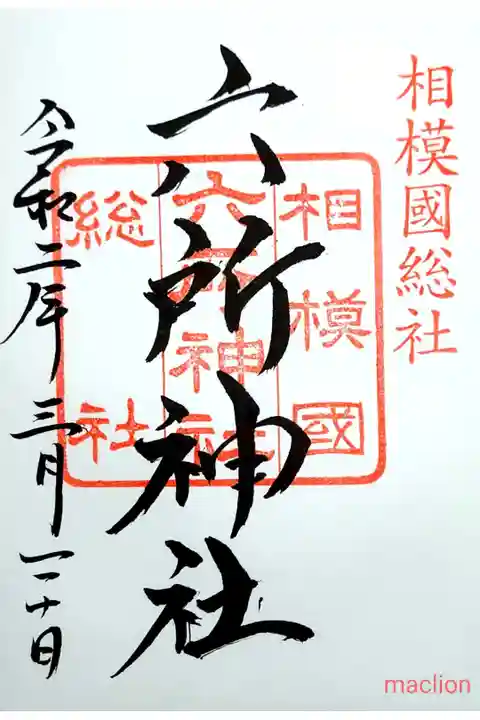 相模國総社
相模國
六所神社
総社
六所神社
令和二年三月二十日
maclion